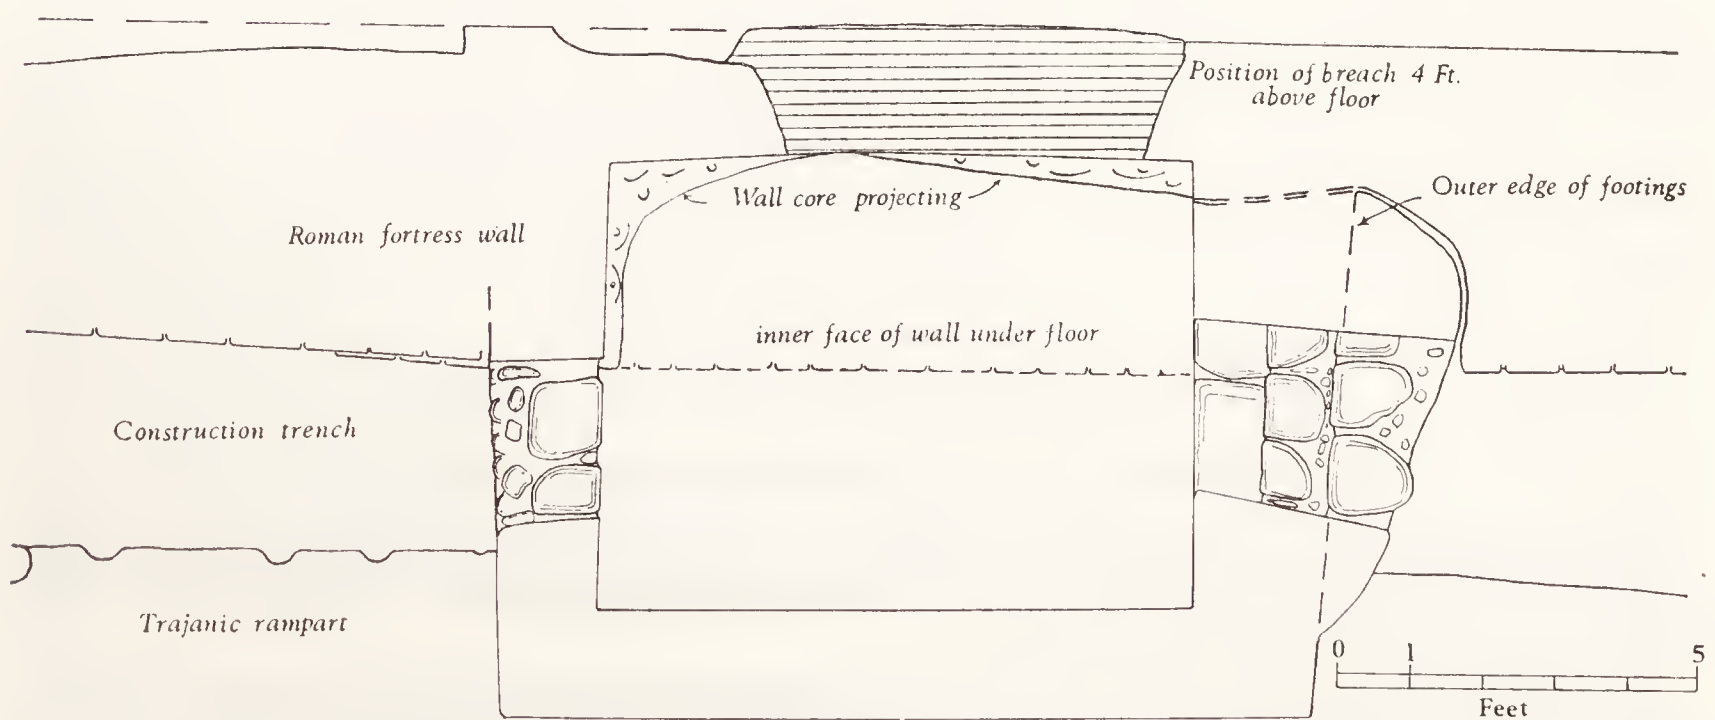 Position of breach 4 Ft.
above floor
Wall core projecting
Outer edge of footings
Roman fortress wall
inner face of wall under floor
Construction trench
Trajanic rampart
0 1 5
Feet